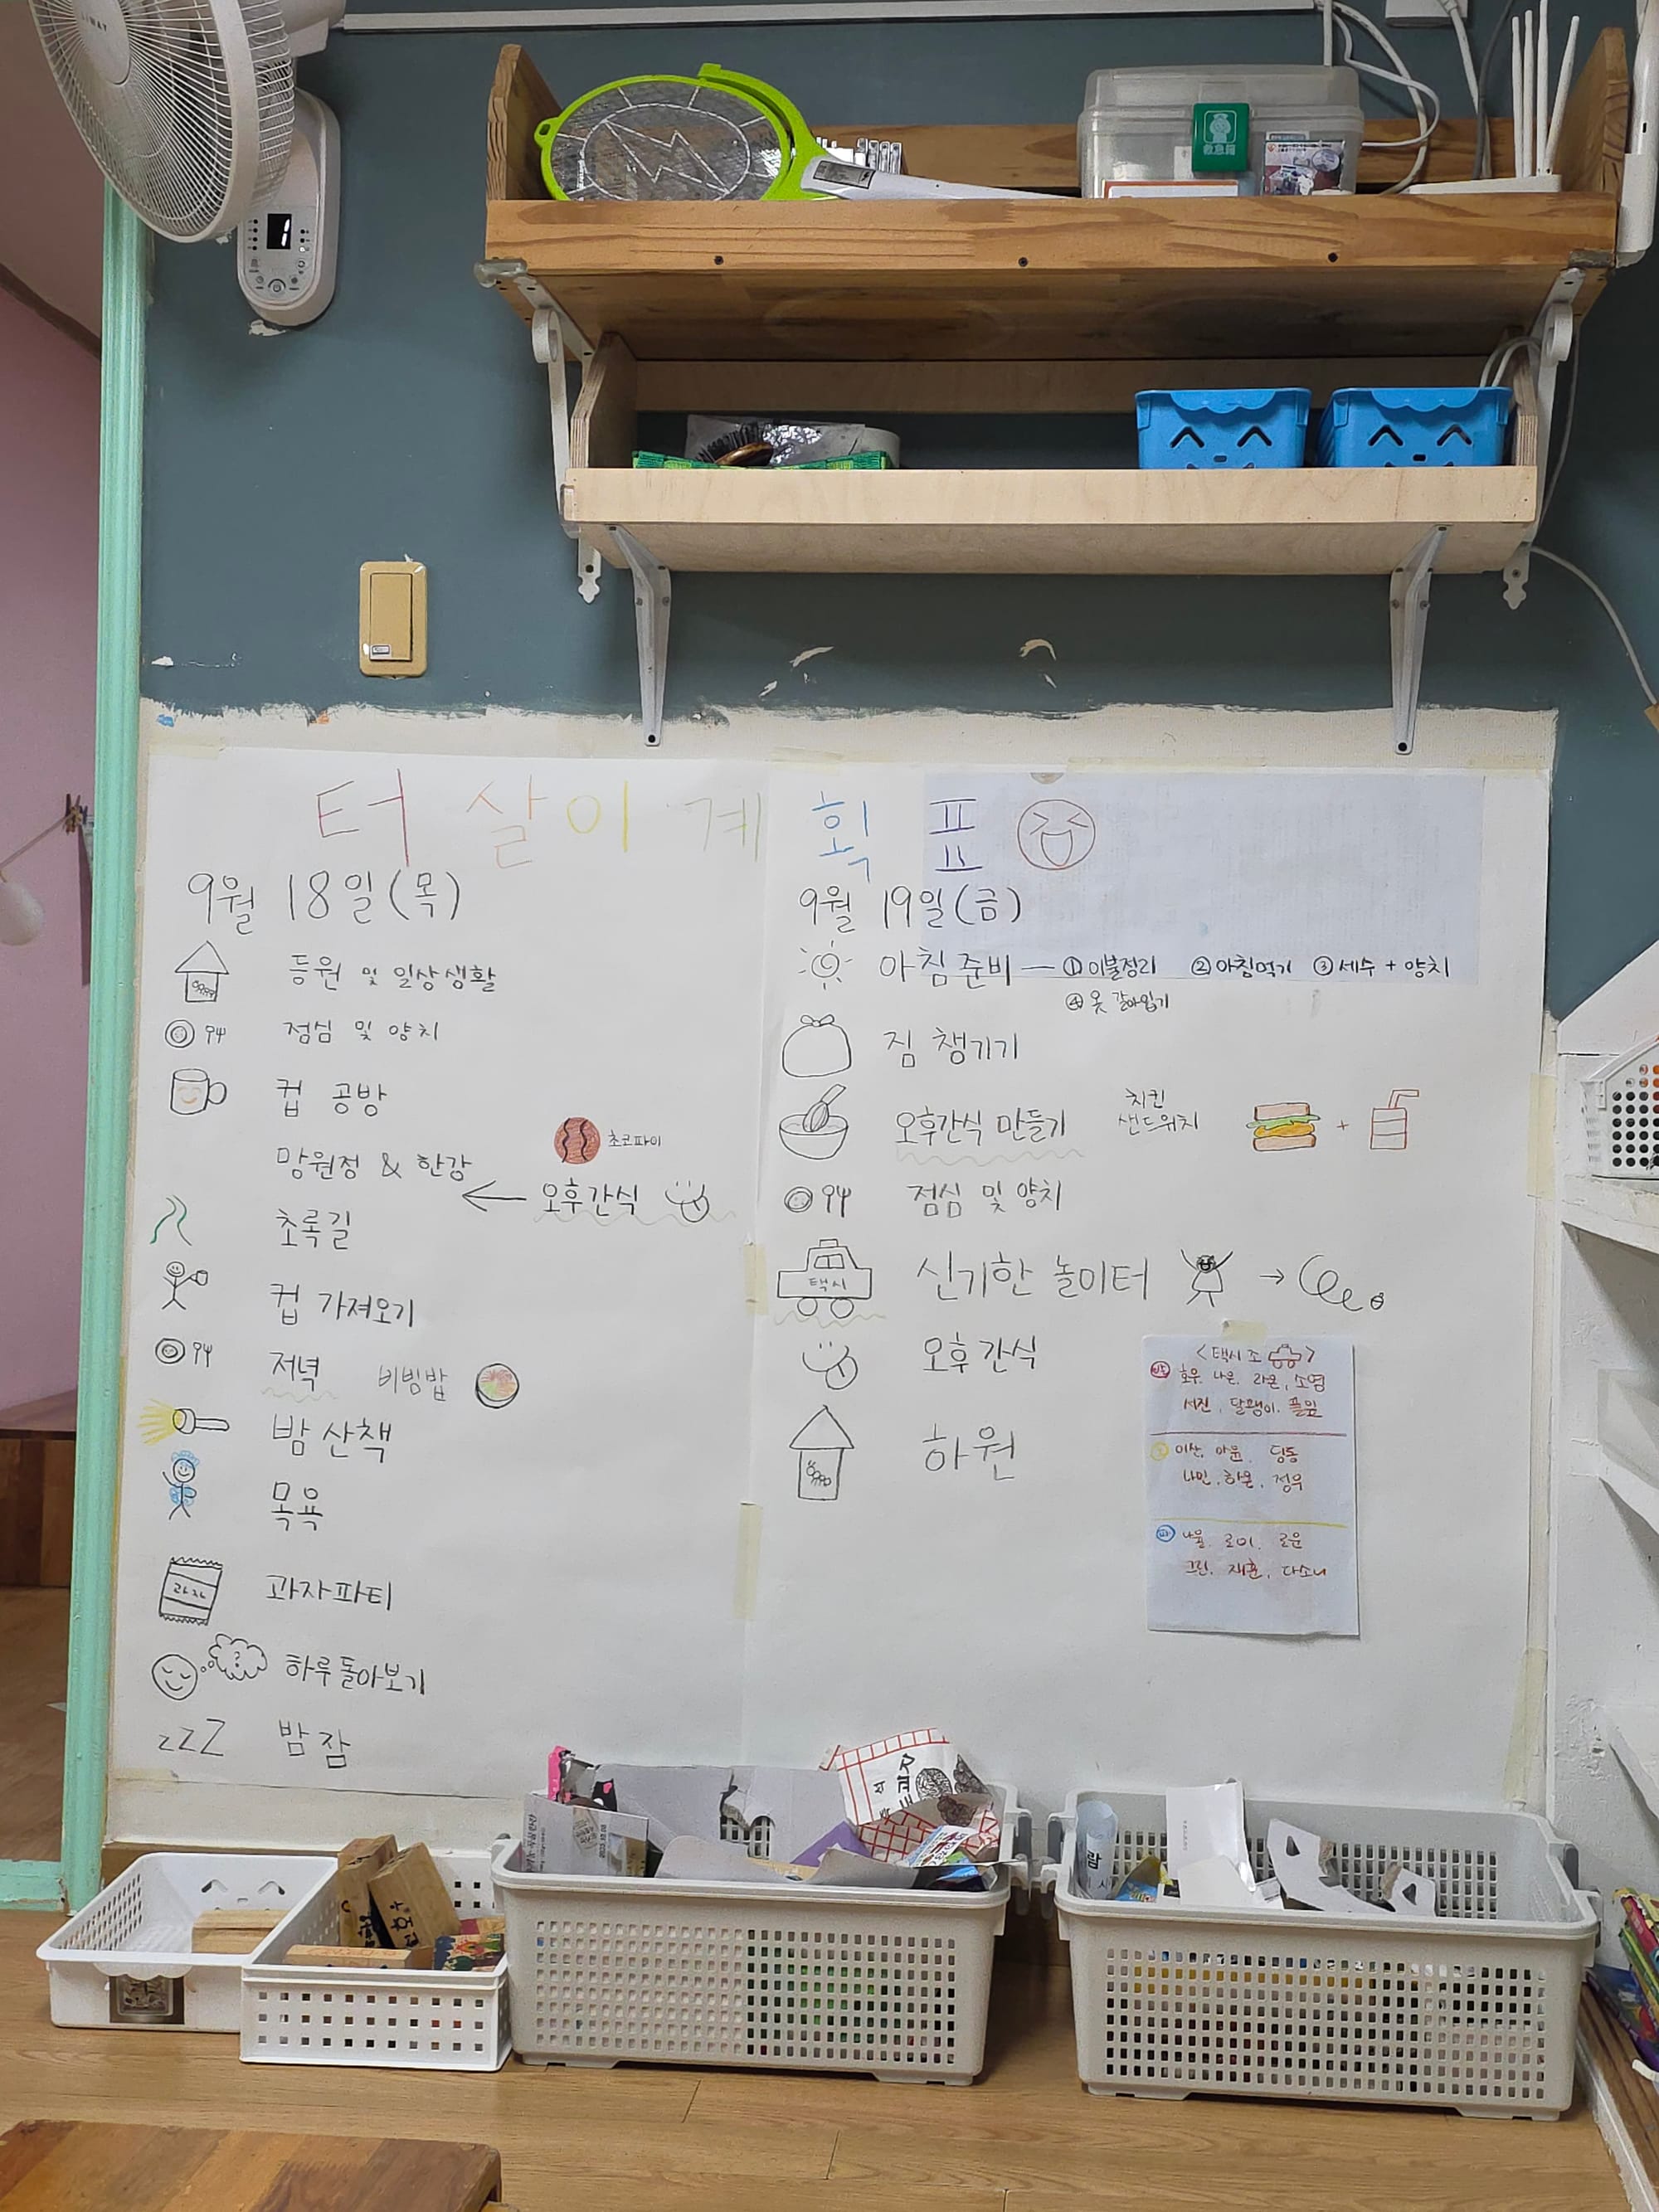 터살이 계획표
9월 18일(목)
등원 및 일상생활
점심 및 양치
컵 공방
망원정 & 한강
초코파이
오후간식
초록길
컵 가져오기
저녁 비빔밥
밤 산책
목욕
과자
과자파티
?
하루 돌아보기
zzZ 밤잠
9월 19일(금)
아침 준비 — ① 이불정리 ② 아침먹기 ③ 세수 + 양치
④ 옷 갈아입기
짐 챙기기
오후간식 만들기 치킨
샌드위치 +
점심 및 양치
택시 신기한 놀이터 →
오후간식
하원
<택시 조>
호우, 나은, 라온, 소영
서진, 달팽이, 풀잎
이산, 아윤, 딩동
나민, 하온, 정우
나율, 로이, 로운
그린, 재훈, 다소니
救急箱